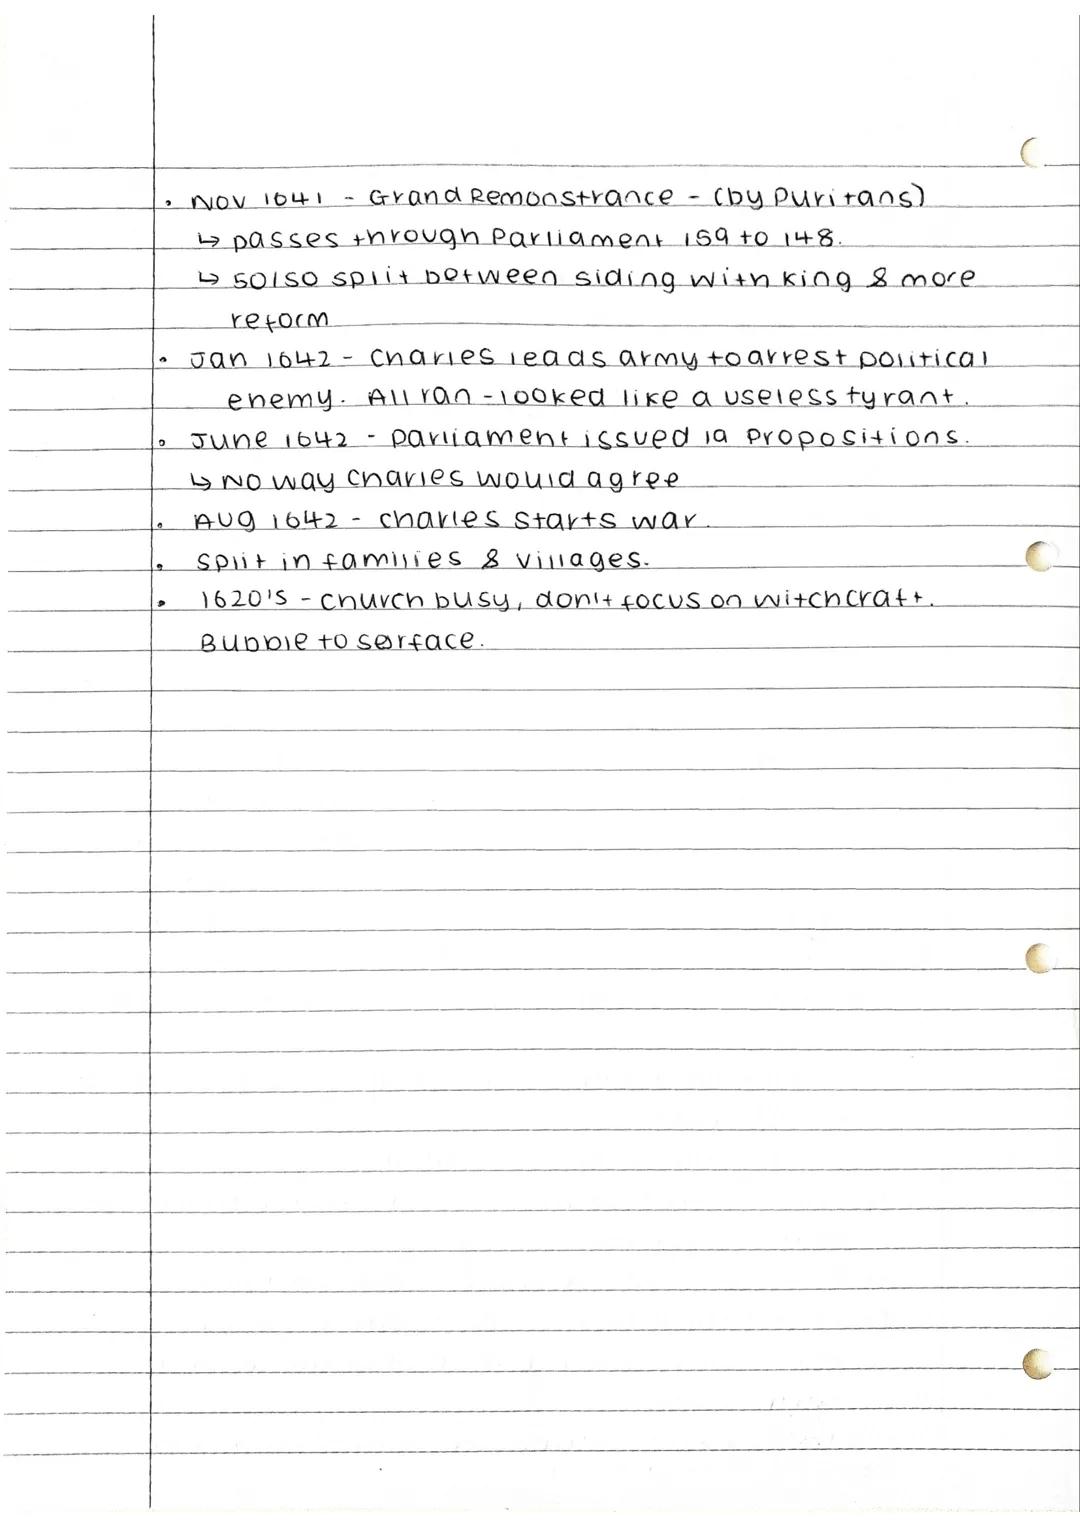 • Nov 1641 - Grand Remonstrance - (by Puritans)
↳ passes through Parliament 159 to 148.
↳ 50/50 split between siding with king & more
reform
• Jan 1642 - Charles leads army to arrest political
enemy. All ran - looked like a useless tyrant.
• June 1642 - parliament issued 19 Propositions.
↳ No way Charles would agree
• Aug 1642 - Charles starts war.
• Split in families & villages.
• 1620's - church busy, don't focus on witchcraft.
Bubble to serface.